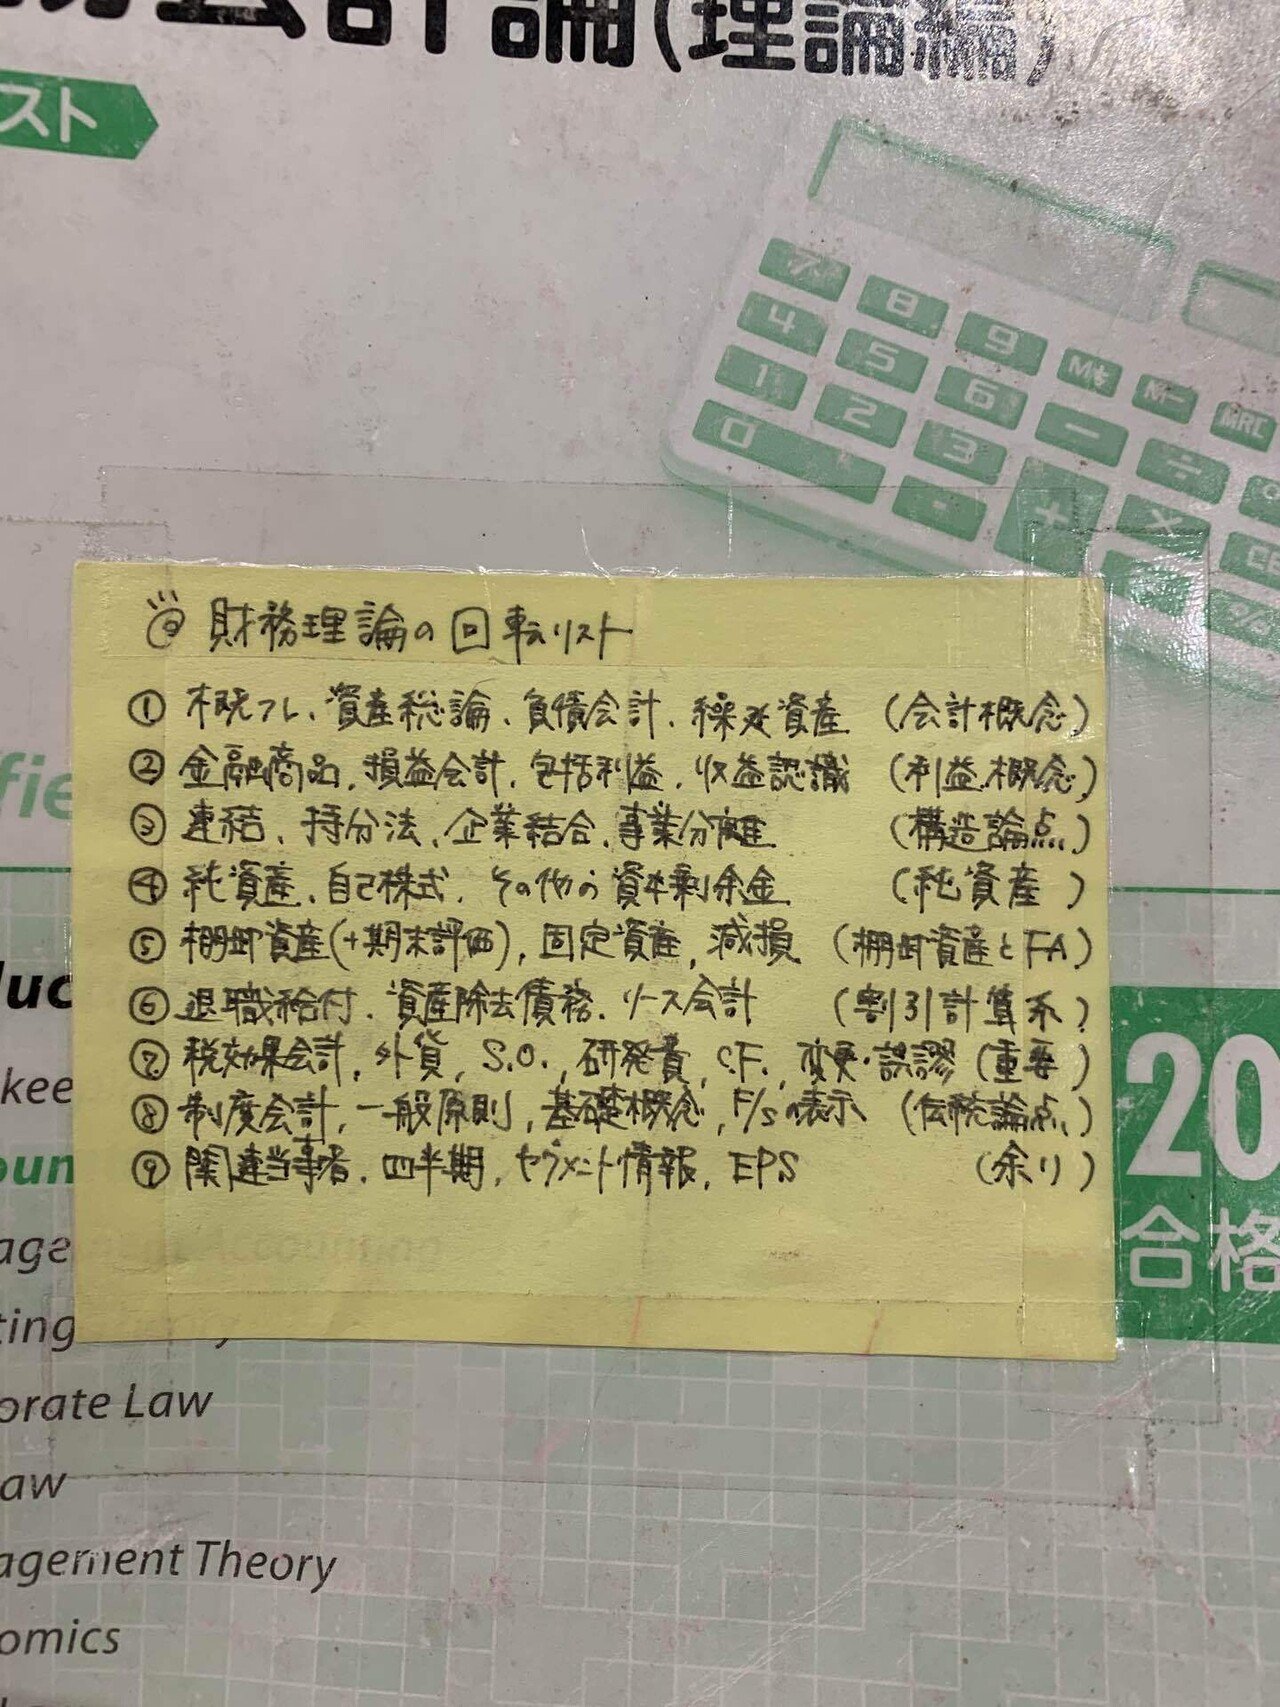 会計論(理論編)
スト
7 8 9 M+ M-
4 5 6 - ÷ MRC
1 2 3 + ×
0 ・
財務理論の回転リスト
① 概フレ、資産総論、負債会計、繰延資産 (会計概念)
② 金融商品、損益会計、包括利益、収益認識 (利益概念)
③ 連結、持分法、企業結合、事業分離 (構造論点)
④ 純資産、自己株式、その他の資本剰余金 (純資産)
⑤ 棚卸資産(+期末評価)、固定資産、減損 (棚卸資産とFA)
⑥ 退職給付、資産除去債務、リース会計 (割引計算系)
⑦ 税効果会計、外貨、S.O.、研発費、C.F.、変更・誤謬 (重要)
⑧ 制度会計、一般原則、基礎概念、F/Sの表示 (伝統論点)
⑨ 関連当事者、四半期、セグメント情報、EPS (余り)
fie
duc
kee
oun
age
ting
20
合格
orate Law
aw
agement Theory
omics